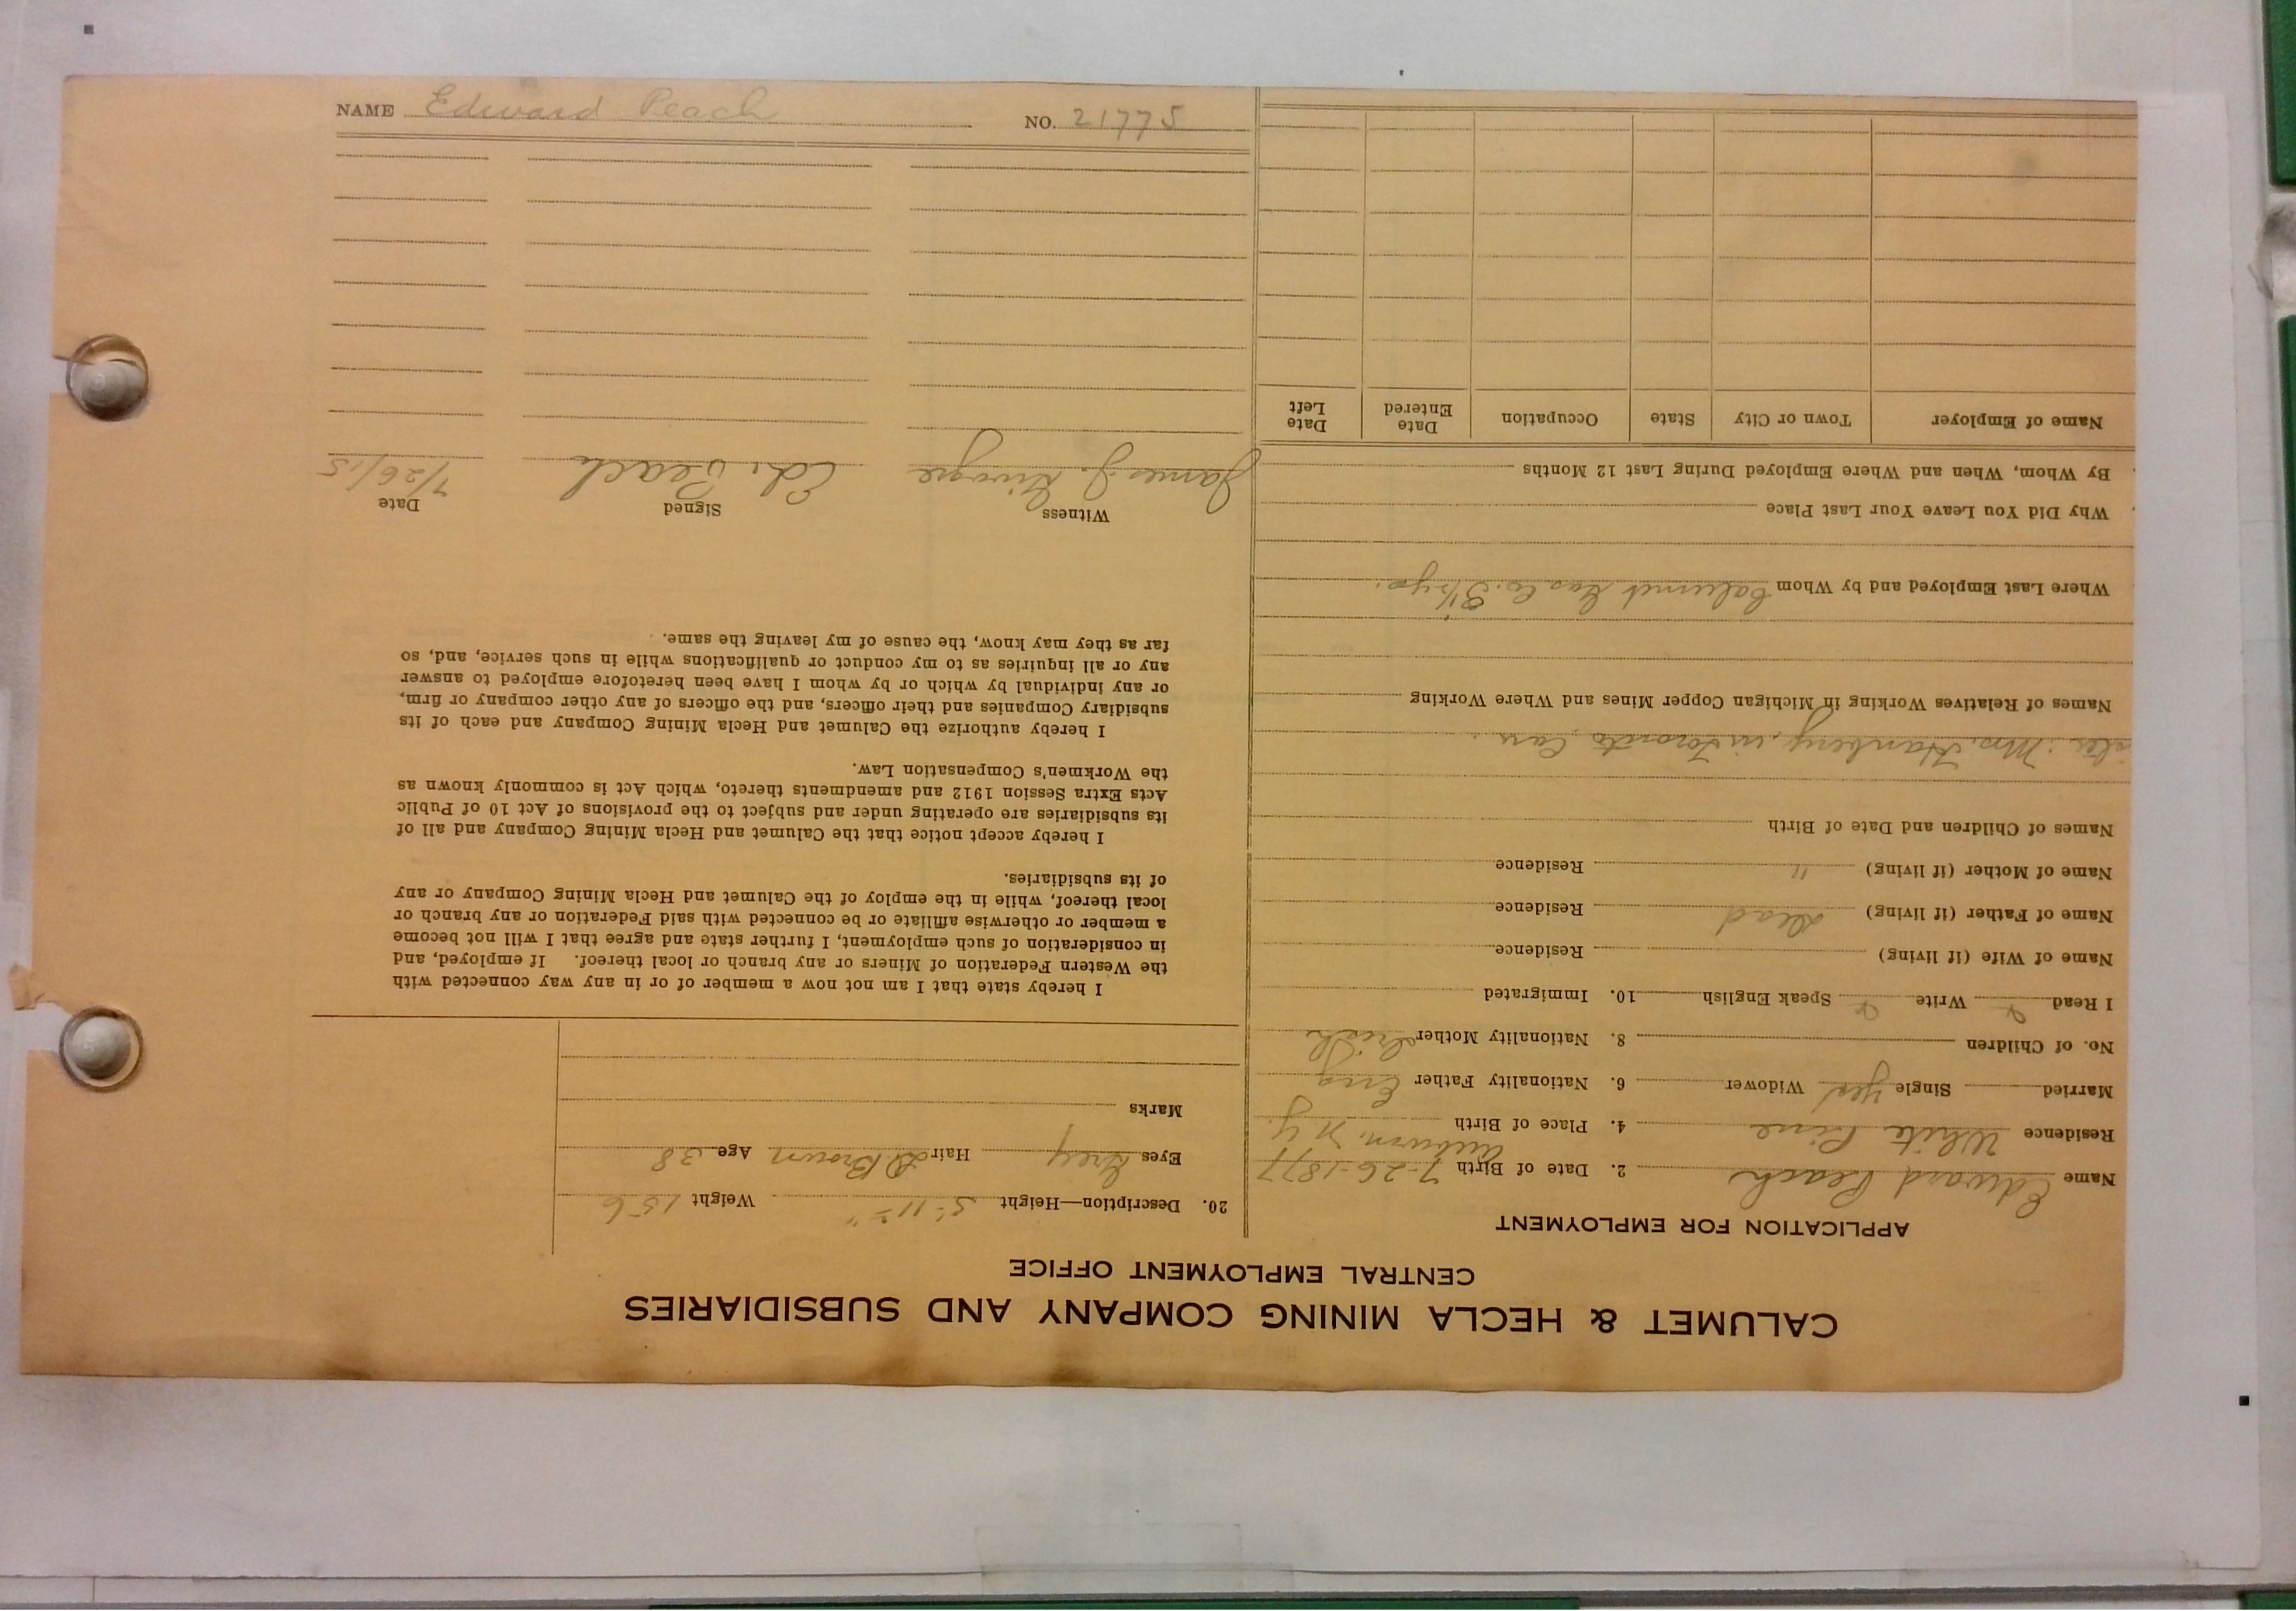 CALUMET & HECLA MINING COMPANY AND SUBSIDIARIES
CENTRAL EMPLOYMENT OFFICE
APPLICATION FOR EMPLOYMENT
Name Edward Peach 2. Date of Birth 7-26-1877
Residence White Pine 4. Place of Birth Auburn, N.Y.
Married Single Yes Widower 6. Nationality Father Eng
No. of Children 8. Nationality Mother Irish
I Read Write Speak English 10. Immigrated
Name of Wife (if living) Residence
Name of Father (if living) Dead Residence
Name of Mother (if living) " Residence
Names of Children and Date of Birth
Mrs. in Toronto, Can.
Names of Relatives Working in Michigan Copper Mines and Where Working
Where Last Employed and by Whom Calumet Gas Co. 3 1/2 yrs.
Why Did You Leave Your Last Place
By Whom, When and Where Employed During Last 12 Months
Name of Employer Town or City State Occupation Date Entered Date Left
20. Description—Height 5' 11" Weight 156
Eyes Grey Hair D Brown Age 38
Marks
I hereby state that I am not now a member of or in any way connected with
the Western Federation of Miners or any branch or local thereof. If employed, and
in consideration of such employment, I further state and agree that I will not become
a member or otherwise affiliate or be connected with said Federation or any branch or
local thereof, while in the employ of the Calumet and Hecla Mining Company or any
of its subsidiaries.
I hereby accept notice that the Calumet and Hecla Mining Company and all of
its subsidiaries are operating under and subject to the provisions of Act 10 of Public
Acts Extra Session 1912 and amendments thereto, which Act is commonly known as
the Workmen's Compensation Law.
I hereby authorize the Calumet and Hecla Mining Company and each of its
subsidiary Companies and their officers, and the officers of any other company or firm,
or any individual by which or by whom I have been heretofore employed to answer
any or all inquiries as to my conduct or qualifications while in such service, and, so
far as they may know, the cause of my leaving the same.
Witness Signed Date
James J. Ed. Peach 7/26/15
NAME Edward Peach NO. 21775